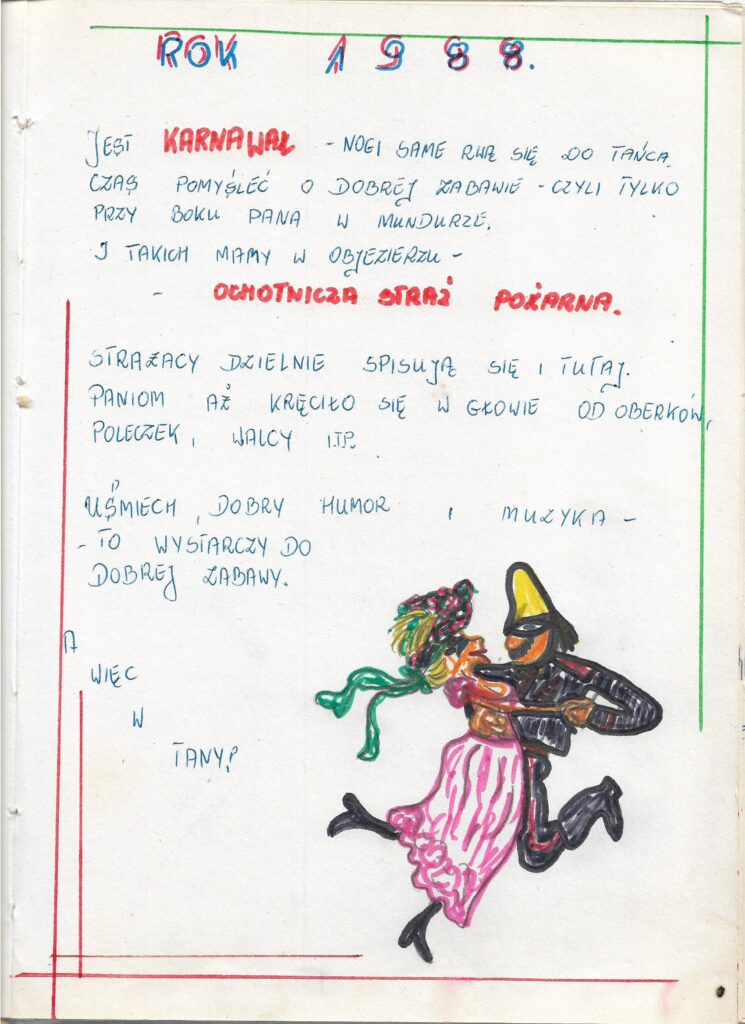 ROK 1988.
JEST KARNAWAŁ - NOGI SAME RWĄ SIĘ DO TAŃCA.
CZAS POMYŚLEĆ O DOBREJ ZABAWIE - CZYLI TYLKO
PRZY BOKU PANA W MUNDURZE.
I TAKICH MAMY W OBJEZIERZU -
- OCHOTNICZA STRAŻ POŻARNA.
STRAŻACY DZIELNIE SPISUJĄ SIĘ I TUTAJ.
PANIOM AŻ KRĘCIŁO SIĘ W GŁOWIE OD OBERKÓW,
POLECZEK, WALCY ITP.
UŚMIECH, DOBRY HUMOR I MUZYKA -
- TO WYSTARCZY DO
DOBREJ ZABAWY.
A
WIĘC
W
TANY!